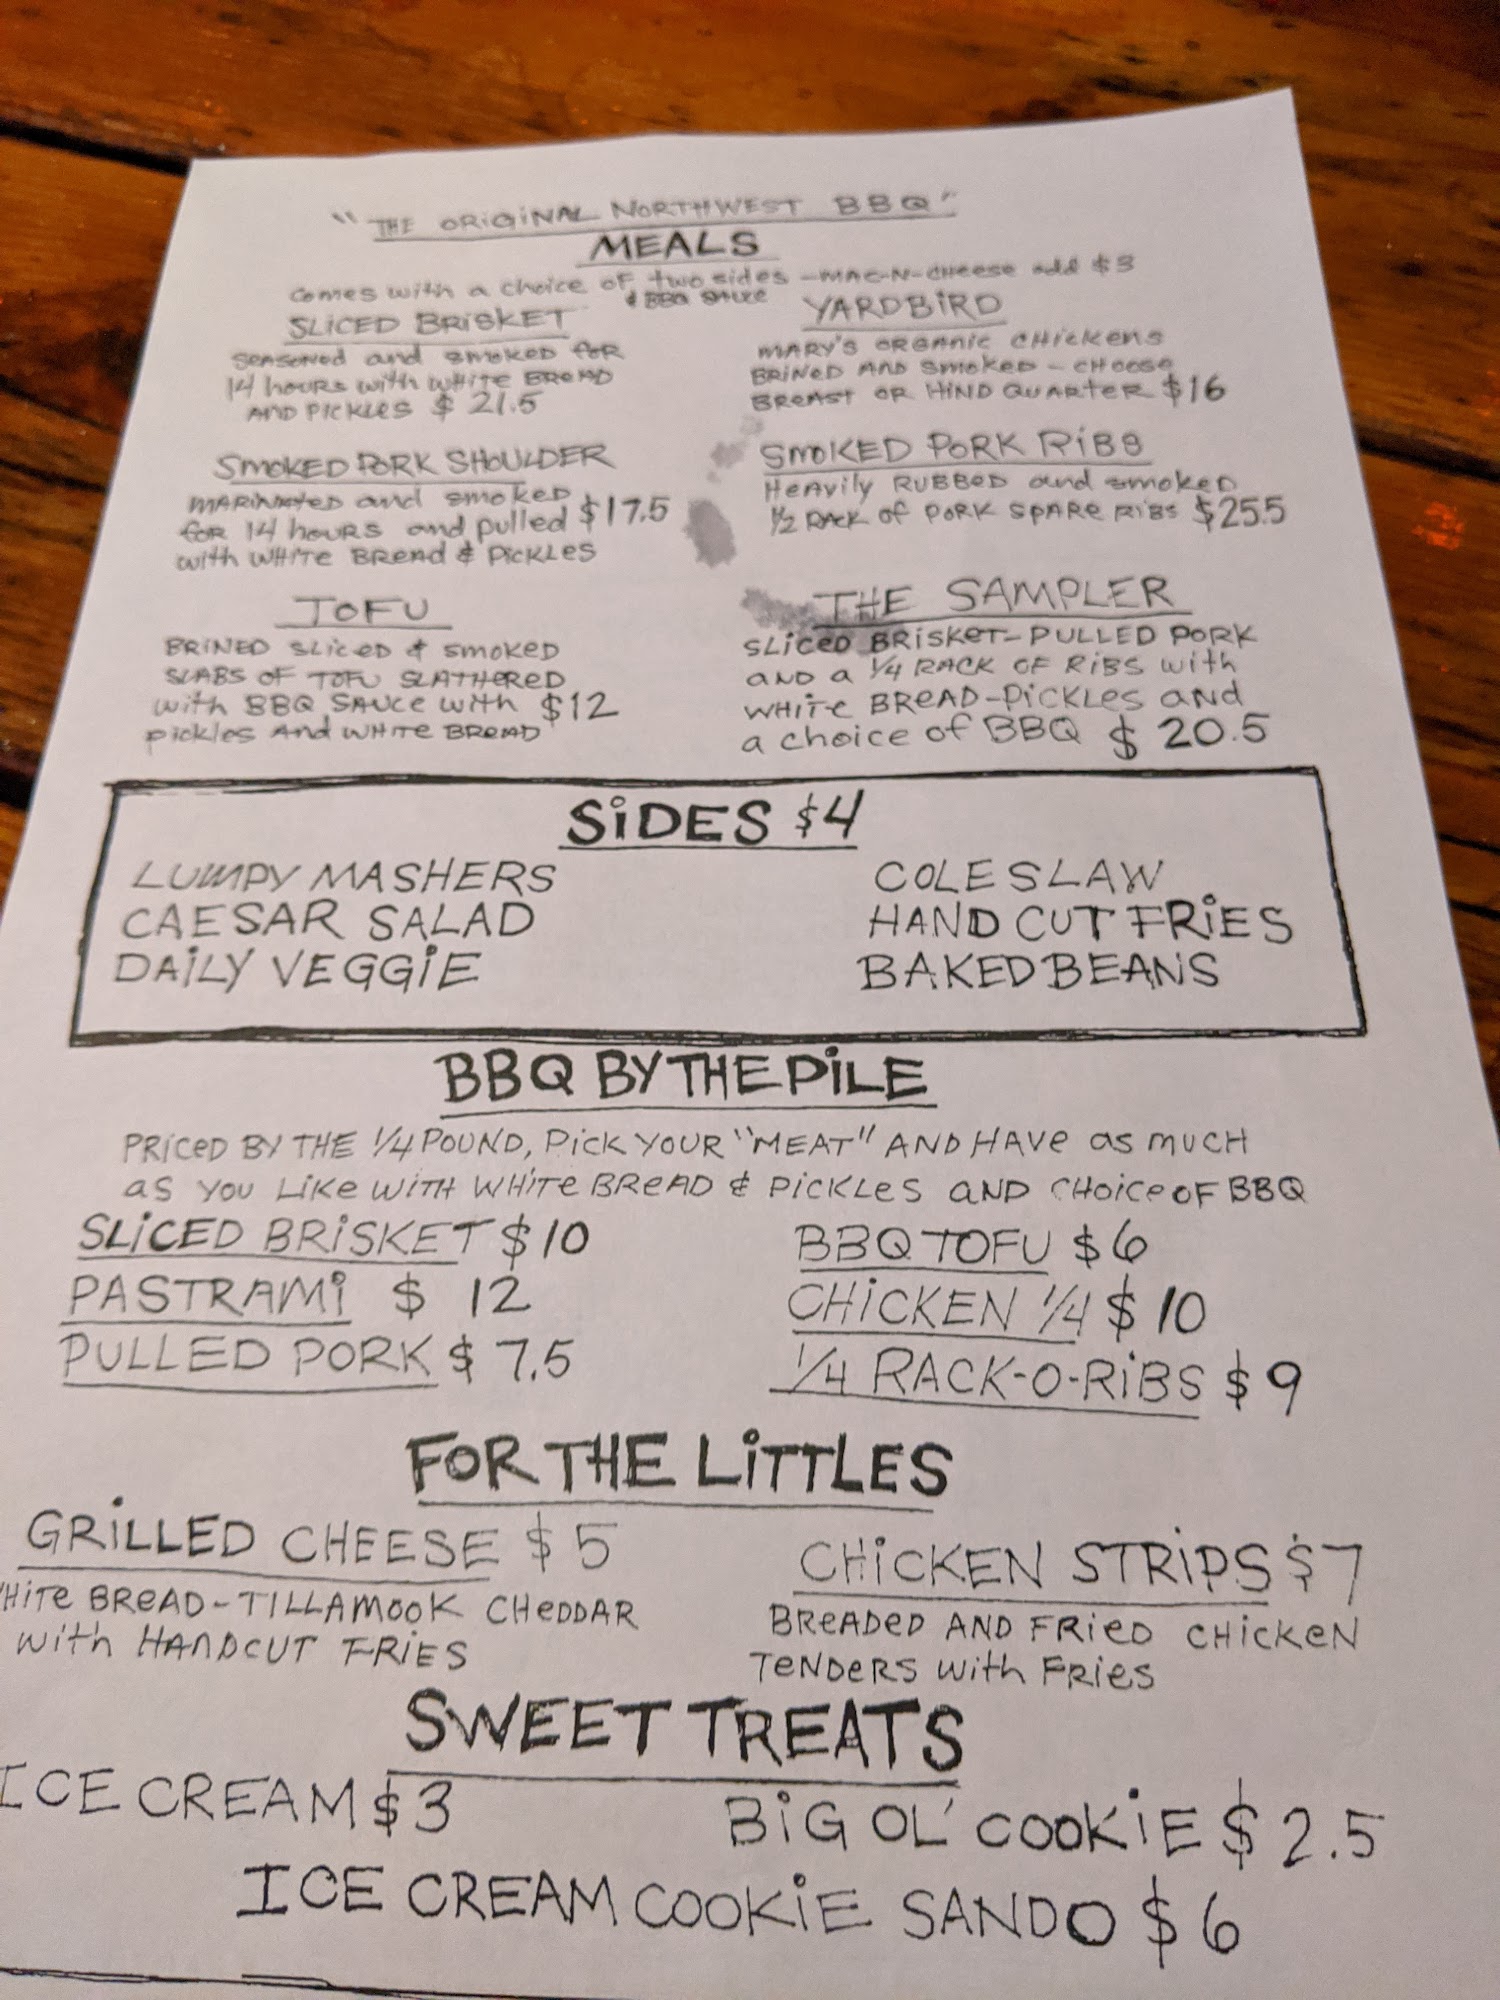 "THE ORIGINAL NORTHWEST BBQ"
MEALS
comes with a choice of two sides - MAC-N-CHeese add $3
& BBQ SAUCE
SLICED BRISKET
SEASONED and smoked for
14 hours with WHITE BREAD
AND PICKLES $ 21.5
YARDBIRD
MARY'S ORGANIC CHICKENS
BRINED AND SMOKED - CHOOSE
BREAST OR HIND QUARTER $16
SMOKED PORK SHOULDER
MARINATED and smoked
for 14 hours and pulled $17.5
with WHITE BREAD & PICKLES
SMOKED PORK RIBS
HEAVILY RUBBED and smoked
1/2 RACK of PORK SPARE RIBS $25.5
TOFU
BRINED SLICED & SMOKED
SLABS OF TOFU SLATHERED
with BBQ SAUCE with $12
pickles AND WHITE BREAD
THE SAMPLER
SLICED BRISKET-PULLED PORK
AND a 1/4 RACK OF RIBS with
WHITE BREAD-PICKLES and
a choice of BBQ $ 20.5
SIDES $4
LUMPY MASHERS
CAESAR SALAD
DAILY VEGGIE
COLESLAW
HAND CUT FRIES
BAKED BEANS
BBQ BY THE PILE
PRICED BY THE 1/4 POUND, PICK YOUR "MEAT" AND HAVE as much
as YOU LIKE WITH WHITE BREAD & PICKLES AND CHOICE OF BBQ
SLICED BRISKET $10
PASTRAMI $ 12
PULLED PORK $ 7.5
BBQ TOFU $6
CHICKEN 1/4 $ 10
1/4 RACK-O-RIBS $9
FOR THE LITTLES
GRILLED CHEESE $5
HITE BREAD-TILLAMOOK CHEDDAR
with HANDCUT FRIES
CHICKEN STRIPS $7
BREADED AND FRIED CHICKEN
TENDERS with FRIES
SWEET TREATS
ICE CREAM $3
BIG OL' COOKIE $ 2.5
ICE CREAM COOKIE SANDO $6